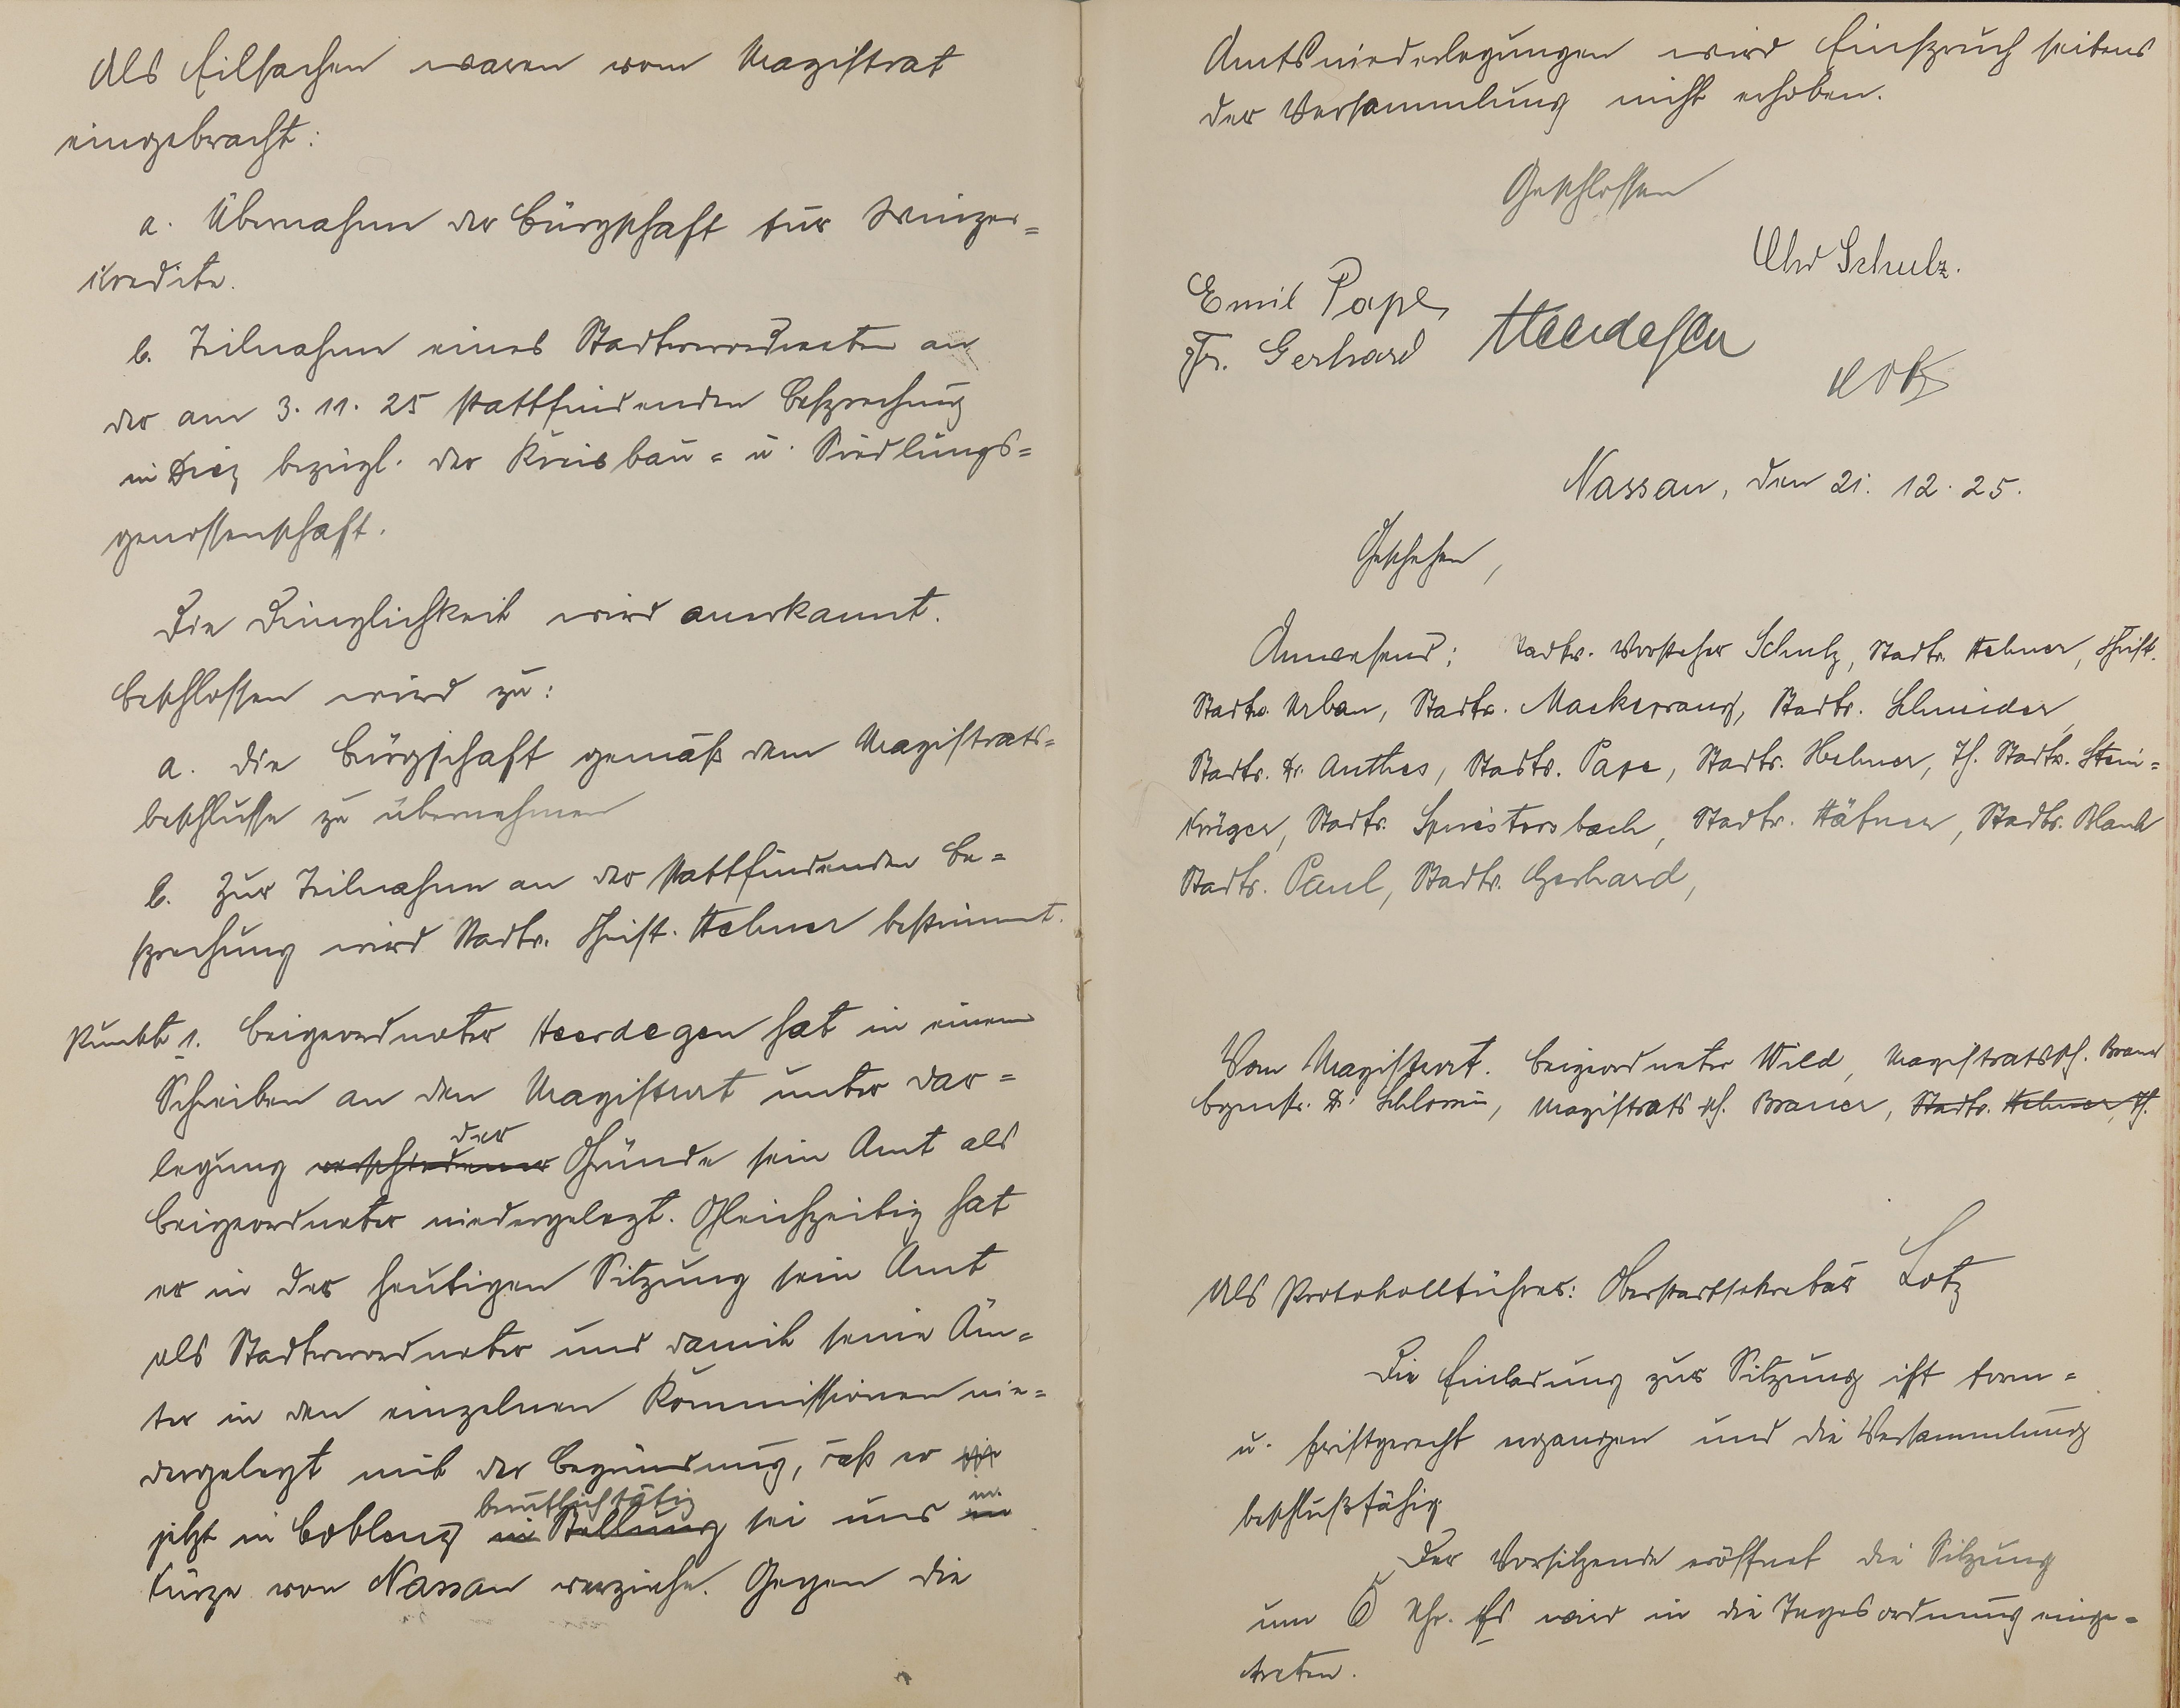 Als Eilsachen waren vom Magistrat
eingebracht:
a. Übernahme der Bürgschaft für Winzer=
kredite.
b. Teilnahme eines Stadtverordneten an
der am 3. 11. 25 stattfindenden Besprechung
in Diez bezügl. der Kreisbau= u. Siedlungs=
genossenschaft.
Die Dringlichkeit wird anerkannt.
Beschlossen wird zu:
a. die Bürgschaft gemäß dem Magistrats=
beschlusse zu übernehmen
b. Zur Teilnahme an der stattfindenden Be=
sprechung wird Stadtv. Christ. Hehner bestimmt.
Punkt 1. Beigeordneter Heerdegen hat in einem
Schreiben an den Magistrat unter Dar=
der
legung verschiedener Gründe sein Amt als
Beigeordneter niedergelegt. Gleichzeitig hat
er in der heutigen Sitzung sein Amt
als Stadtverordneter und damit seine Äm=
ter in den einzelnen Kommissionen nie=
dergelegt mit der Begründung, daß er
beruflich tätig in
jetzt in Coblenz in Stellung sei und in
Kürze von Nassau verziehe. Gegen die
Amtsniederlegungen wird Einspruch seitens
der Versammlung nicht erhoben.
Geschlossen
Chr Schulz.
Emil Pape
Fr. Gerhard Heerdegen
Lotz
Nassau, den 21. 12. 25.
Geschehen,
Anwesend: Stadtv. Vorsteher Schulz, Stadtv. Hehner, Christ.
Stadtv. Urban, Stadtv. Mackeprang, Stadtv. Schneider,
Stadtv. Dr. Anthes, Stadtv. Pape, Stadtv. Hehner, Th. Stadtv. Stein=
krüger, Stadtv. Spriestersbach, Stadtv. Häfner, Stadtv. Blank
Stadtv. Paul, Stadtv. Gerhard,
Vom Magistrat. Beigeordneter Wild, Magistratssch. Brauer
Bgmstr. Dr. Magistrats sch. Brauer, Stadtv. Hehner, Th.
Als Protokollführer: Oberstadtsekretär Lotz
Die Einladung zur Sitzung ist form=
u. fristgerecht ergangen und die Versammlung
beschlußfähig.
Der Vorsitzende eröffnet die Sitzung
um 6 Uhr. Es wird in die Tagesordnung einge=
treten.